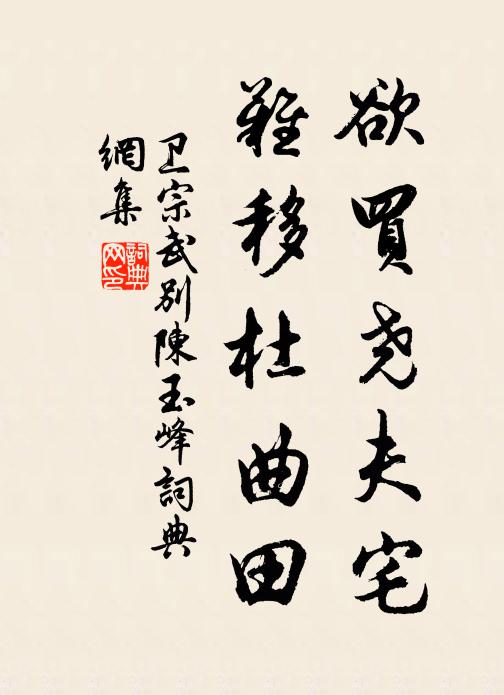 欲買尧夫宅
難移杜曲田
卫宗武别陳玉峰詞典
網集
詞典网印